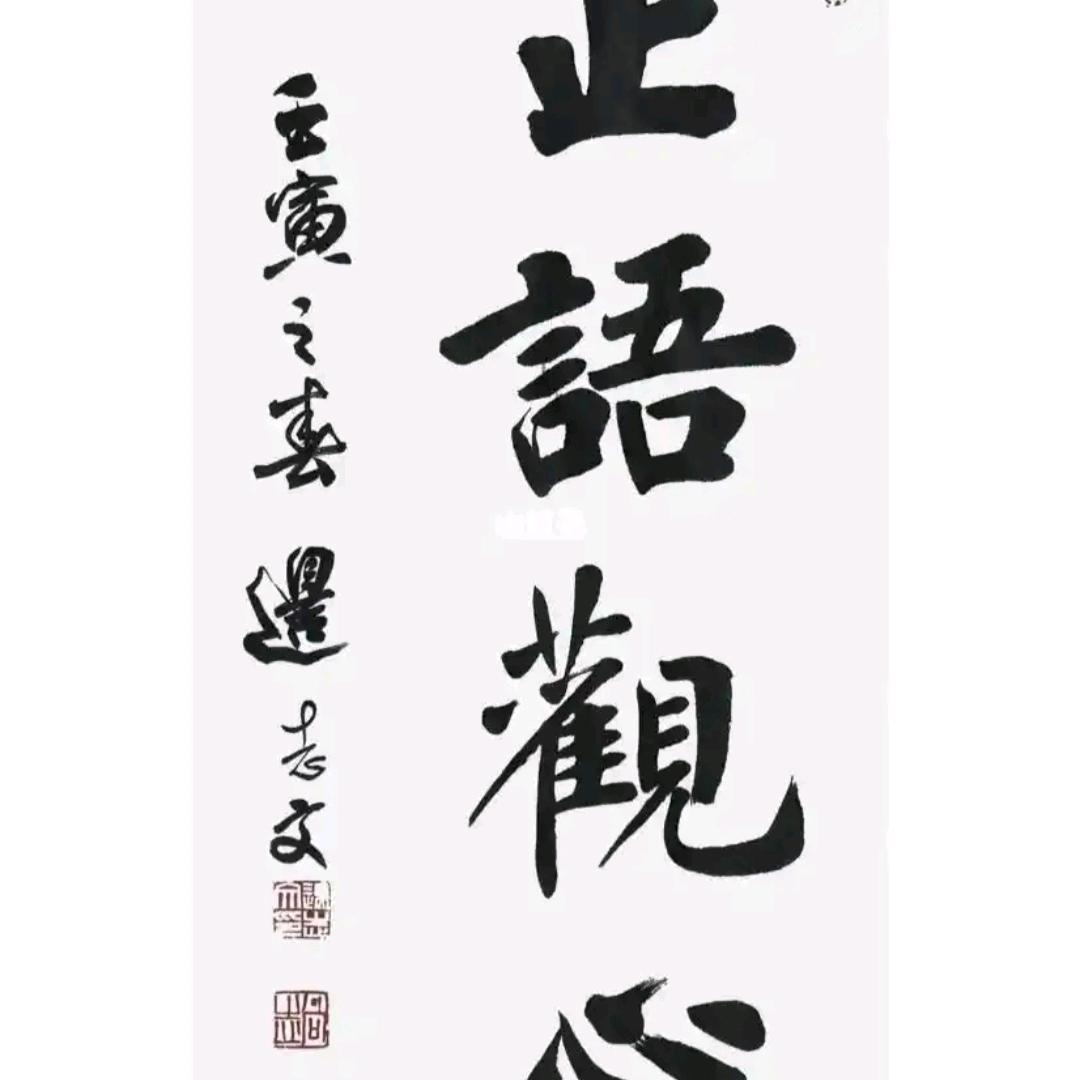 止語觀心
壬寅之春 邊志文